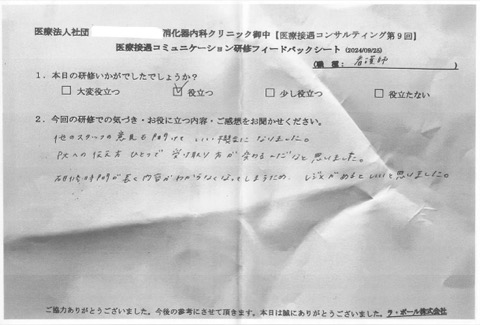 医療法人社団 消化器内科クリニック御中【医療接遇コンサルティング第9回】
医療接遇コミュニケーション研修フィードバックシート (2024/09/25)
(職 種: 看護師 )
1.本日の研修いかがでしたでしょうか?
□大変役立つ ☑役立つ □少し役立つ □役立たない
2.今回の研修での気づき・お役に立つ内容・ご感想をお聞かせください。
他のスタッフの意見も聞けて いい機会になりました。
伝え方 ひとつで 受け取り方が変わるんだなと思いました。
研修時間が長く内容がわからなくなってしまうため、レジュメがあるといいと思いました。
ご協力ありがとうございました。今後の参考にさせて頂きます。本日は誠にありがとうございました。ラ・ポール株式会社